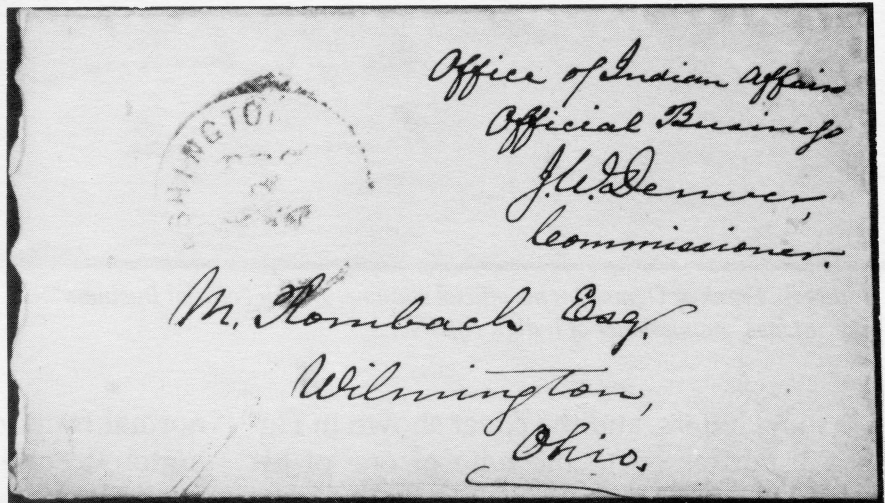 Office of Indian Affairs
Official Business
J.W. Denver,
Commissioner.
SHINGTO
M. Rombach Esq.
Wilmington,
Ohio.